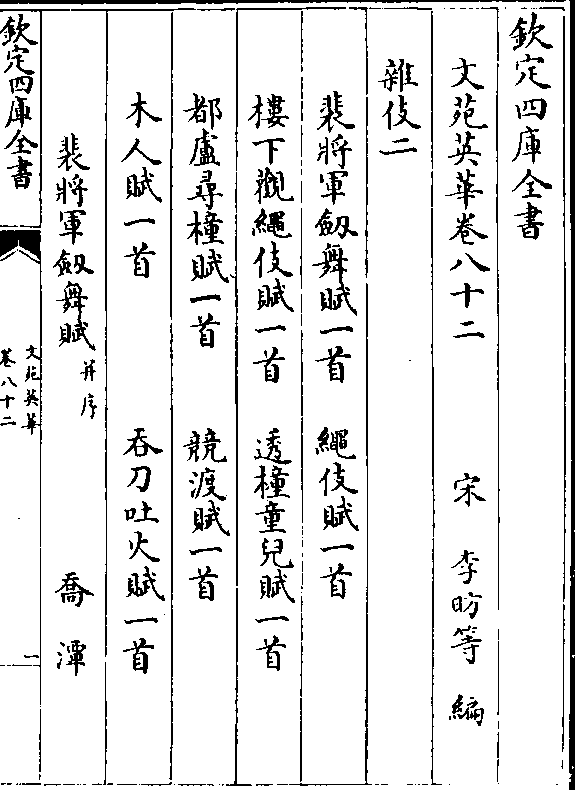 欽定四庫全書
文苑英華卷八十二
宋 李昉等 編
雜伎二
裴將軍劔舞賦一首 繩伎賦一首
樓下觀繩伎賦一首 透橦童兒賦一首
都盧尋橦賦一首 競渡賦一首
木人賦一首 吞刀吐火賦一首
裴將軍劔舞賦 并序 喬潭
欽定四庫全書
文苑英華
卷八十二
一